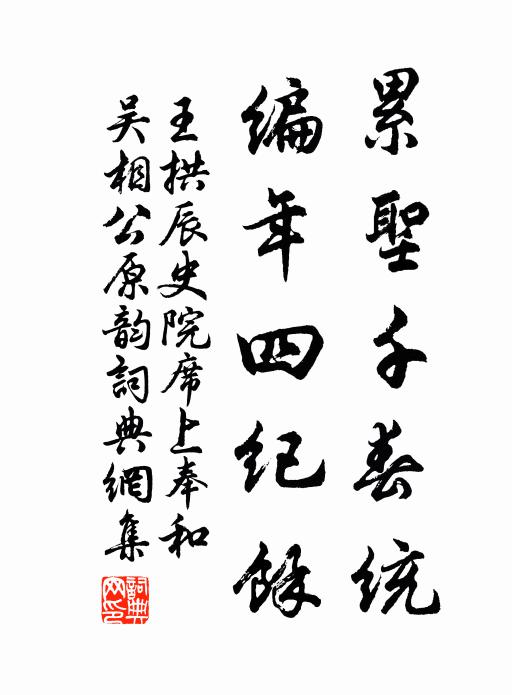 累聖千春統
編年四紀餘
王拱辰史院席上奉和
吴相公原韵詞典網集
詞典
网印